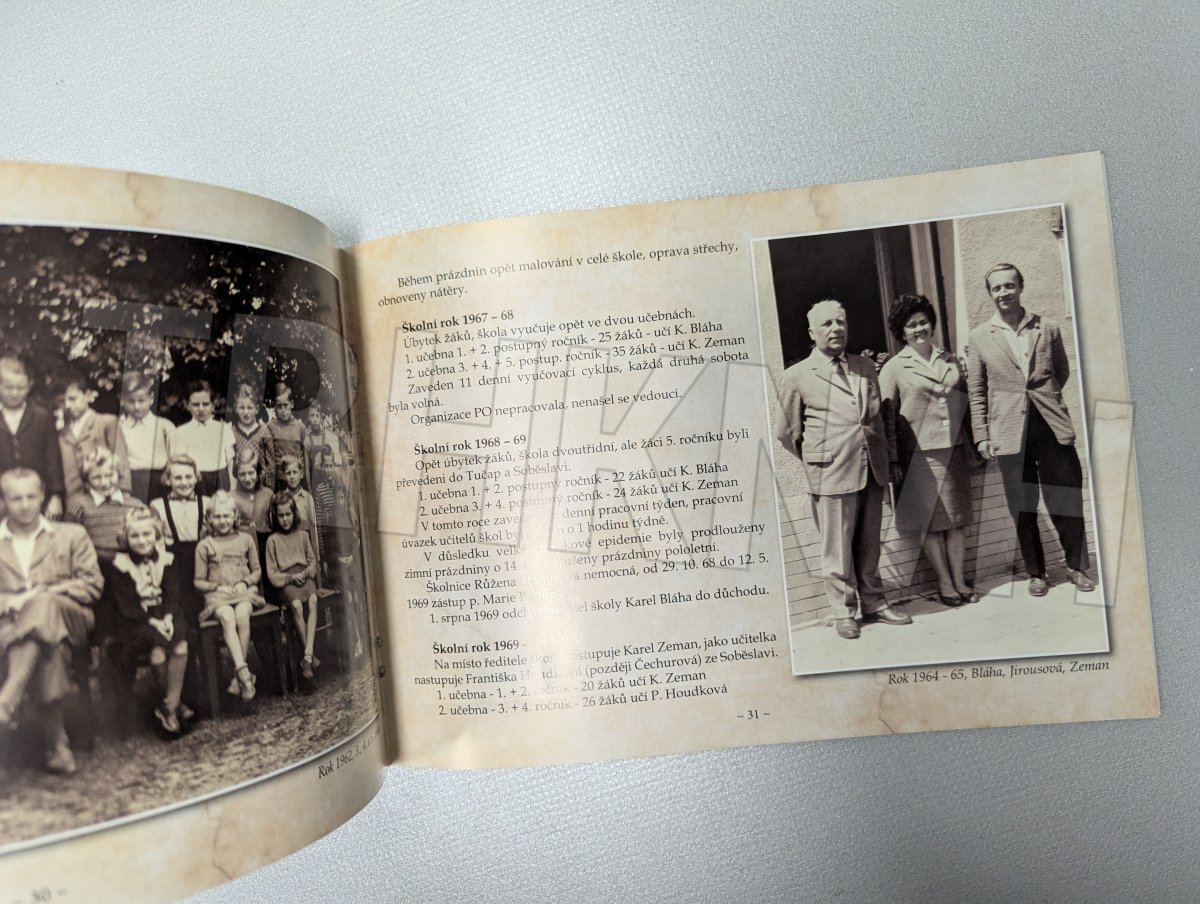 Rok 1962, 3., 4.
~ 30 ~
Během prázdnin opět malování v celé škole, oprava střechy,
obnoveny nátěry.
Školní rok 1967 – 68
Úbytek žáků, škola vyučuje opět ve dvou učebnách.
1. učebna 1. + 2. postupný ročník - 25 žáků - učí K. Bláha
2. učebna 3. + 4. + 5. postup. ročník - 35 žáků - učí K. Zeman
Zaveden 11 denní vyučovací cyklus, každá druhá sobota
byla volná.
Organizace PO nepracovala, nenašel se vedoucí.
Školní rok 1968 – 69
Opět úbytek žáků, škola dvoutřídní, ale žáci 5. ročníku byli
převedeni do Tučap a Soběslavi.
1. učebna 1. + 2. postupný ročník - 22 žáků učí K. Bláha
2. učebna 3. + 4. postupný ročník - 24 žáků učí K. Zeman
V tomto roce denní pracovní týden, pracovní
úvazek učitelů škol o 1 hodinu týdně.
V důsledku epidemie byly prodlouženy
zimní prázdniny o 14 prázdniny pololetní.
Školnice Růžena nemocná, od 29. 10. 68 do 12. 5.
1969 zástup p. Marie
1. srpna 1969 školy Karel Bláha do důchodu.
Školní rok 1969 -
Na místo ředitele Karel Zeman, jako učitelka
nastupuje Františka Houdková (později Čechurová) ze Soběslavi.
1. učebna - 1. + 2. ročník - 20 žáků učí K. Zeman
2. učebna - 3. + 4. ročník - 26 žáků učí P. Houdková
~ 31 ~
Rok 1964 - 65, Bláha, Jirousová, Zeman
TRHKNIH